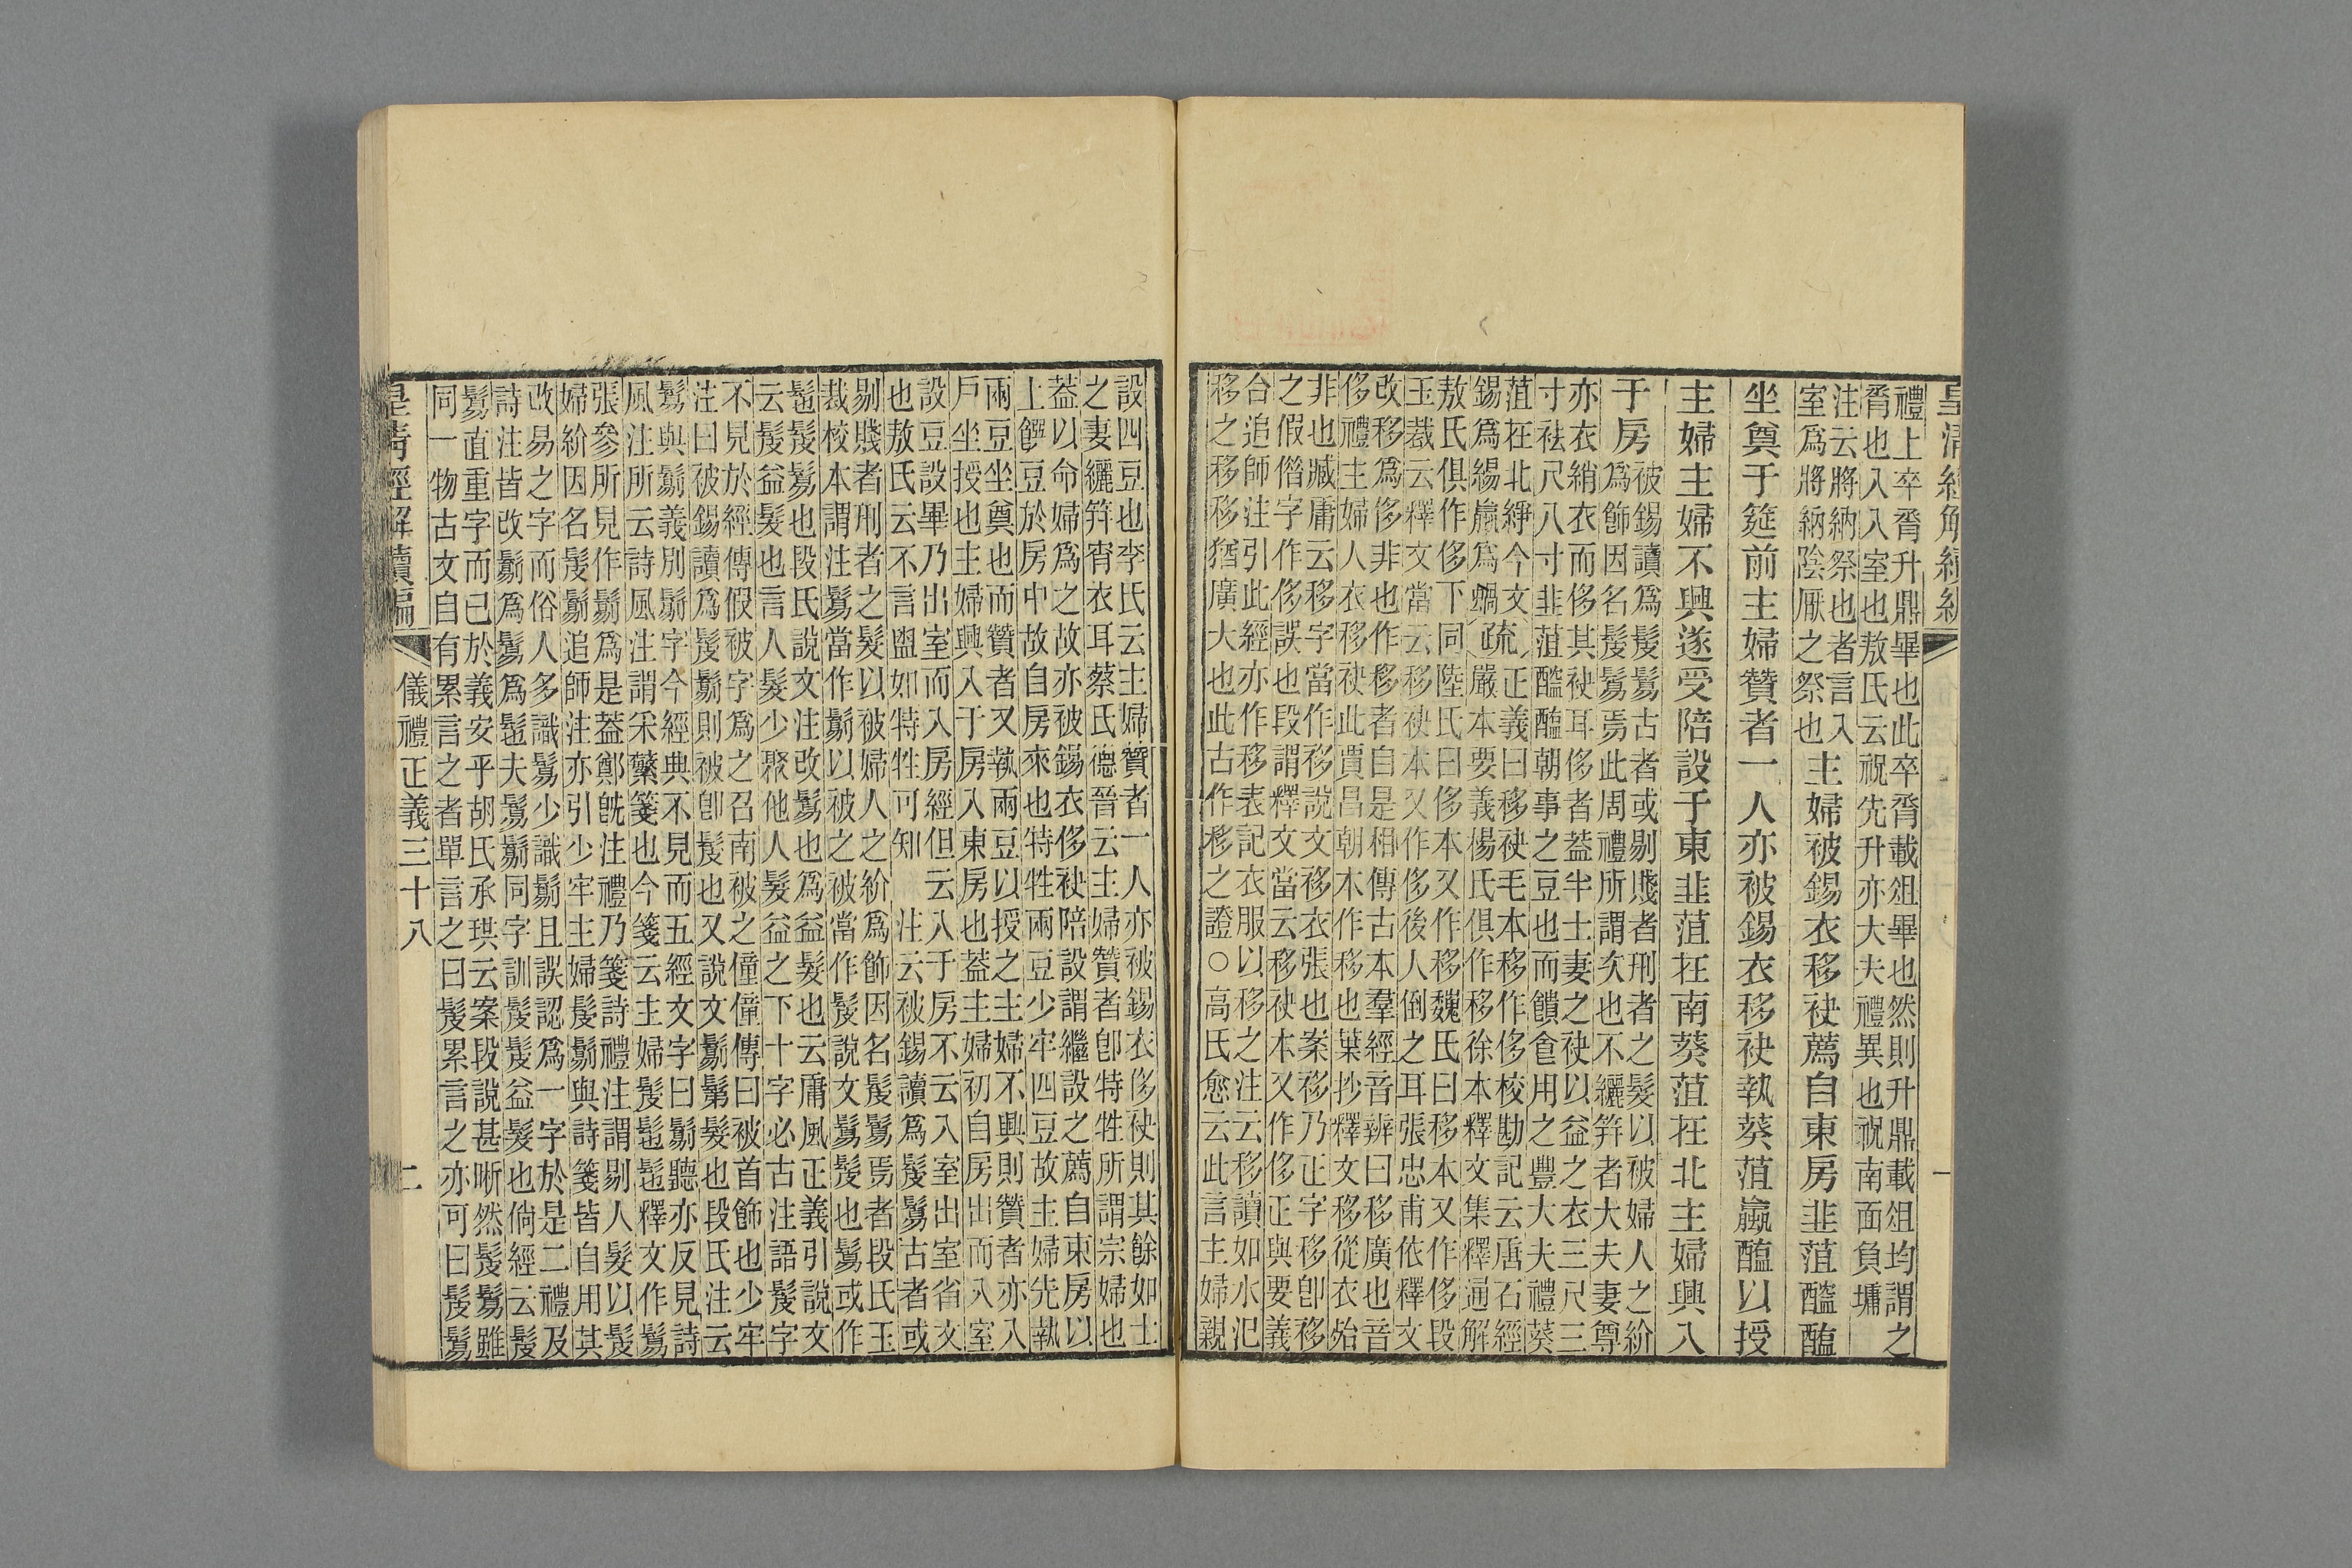 皇清經解續編
一
禮上卒脀升鼎畢也此卒脀載俎畢也然則升鼎載俎均謂之
脀也入入室也敖氏云祝先升亦大夫禮異也祝南面負墉
注云將納祭也者言入
室爲將納陰厭之祭也
主婦被錫衣移袂薦自東房韭菹醓醢
坐奠于筵前主婦贊者一人亦被錫衣移袂執葵菹蠃醢以授
主婦主婦不興遂受陪設于東韭菹在南葵菹在北主婦興入
于房
被錫讀爲髲鬄古者或剔賤者刑者之髮以被婦人之紒
爲飾因名髲鬄焉此周禮所謂次也不纚笄者大夫妻尊
亦衣綃衣而侈其袂耳侈者葢半士妻之袂以益之衣三尺三
寸袪尺八寸韭菹醓醢朝事之豆也而饋食用之豐大夫禮葵
菹在北綪今文
錫爲緆蠃爲蝸
疏
正義曰移袂毛本移作侈校勘記云唐石經
嚴本要義楊氏俱作移徐本釋文集釋通解
敖氏俱作侈下同陸氏曰侈本又作移魏氏曰移本又作侈段
玉裁云釋文當云移袂本又作侈後人倒之耳張忠甫依釋文
改移爲侈非也作移者自是相傳古本羣經音辨曰移廣也音
侈禮主婦人衣移袂此賈昌朝本作移也葉抄釋文移從衣殆
非也臧庸云移字當作移說文移衣張也案移乃正字移卽移
之假借字作侈誤也段謂釋文當云移袂本又作侈正與要義
合追師注引此經亦作移表記衣服以移之注云移讀如水汜
移之移移猶廣大也此古作移之證○高氏愈云此言主婦親
設四豆也李氏云主婦贊者一人亦被錫衣侈袂則其餘如士
之妻纚笄宵衣耳蔡氏德晉云主婦贊者卽特牲所謂宗婦也
葢以命婦爲之故亦被錫衣侈袂陪設謂繼設之薦自東房以
上饌豆於房中故自房來也特牲兩豆少牢四豆故主婦先執
兩豆坐奠也而贊者又執兩豆以授之主婦不興則贊者亦入
戶坐授也主婦興入于房入東房也葢主婦初自房出而入室
設豆設畢乃出室而入房經但云入于房不云入室出室省文
也敖氏云不言盥如特牲可知
注云被錫讀爲髲鬄古者或
剔賤者刑者之髮以被婦人之紒爲飾因名髲鬄焉者段氏玉
裁校本謂注鬄當作鬄以被之被當作髲說文鬄髲也鬄或作
髢髲鬄也段氏說文注改鬄也爲益髮也云庸風正義引說文
云髲益髮也言人髮少聚他人髮益之下十字必古注語髲字
不見於經傳假被字爲之召南被之僮僮傳曰被首飾也少牢
注曰被錫讀爲髲鬄則被卽髲也又說文鬄鬀髮也段氏注云
鬄與鬄義別鬄字今經典不見而五經文字曰鬄聽亦反見詩
風注所云詩風注謂采蘩箋也今箋云主婦髲髢髢釋文作鬄
張參所見作鬄爲是葢鄭旣注禮乃箋詩禮注謂剔人髮以髲
婦紒因名髲鬄追師注亦引少牢主婦髲鬄與詩箋皆自用其
改易之字而俗人多識鬄少識鬄且誤認爲一字於是二禮及
詩注皆改鬄爲鬄爲髢夫鬄鬄同字訓髲髲益髮也倘經云髲
鬄直重字而已於義安乎胡氏承珙云案段說甚晰然髲鬄雖
同一物古文自有累言之者單言之曰髲累言之亦可曰髲鬄
皇淸經解續編
儀禮正義三十八
二